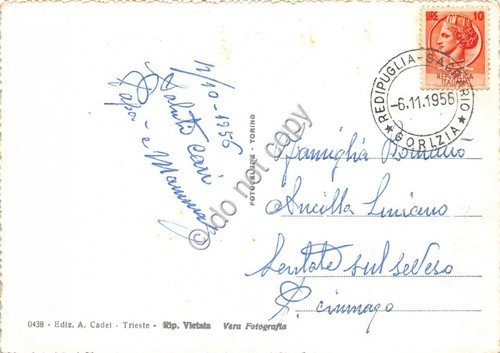 LIRE 10
REPUBBLICA
ITALIANA
★ REDIPUGLIA-SACRARIO ★
-6.11.1956
GORIZIA
1/10-1956
Saluti cari
Papà e Mamma
do not copy
- TORINO
Famiglia Romanò
Ancilla Luciano
Lentate sul seveso
P. cimnago
0438 - Ediz. A. Cadel - Trieste - Rip. Vietata Vera Fotografia